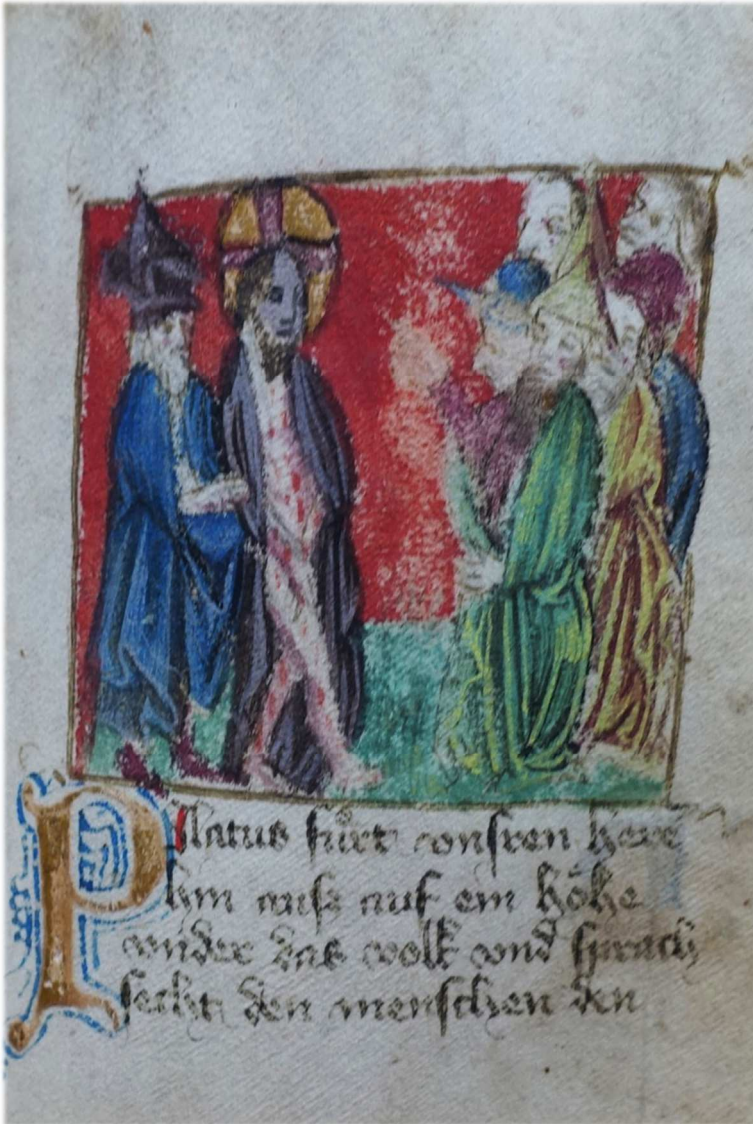 Pilatus fuͤrt vnsren here
hin auſz auf ein hoͤhe
vnder das volk vnd sprach
secht den menschen den